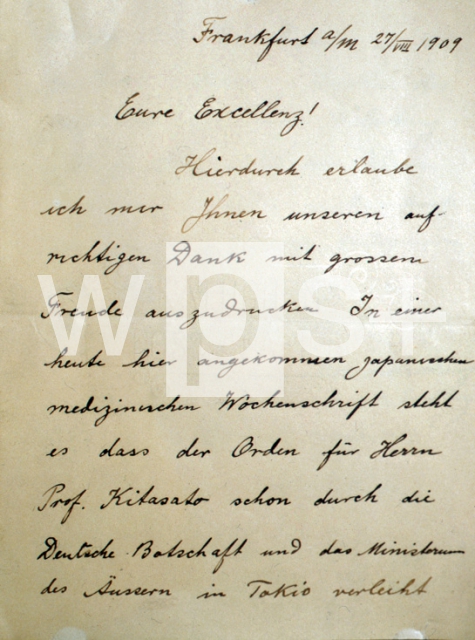 Frankfurt a/M 27/VIII 1909
Eure Excellenz!
Hierdurch erlaube
ich mir Ihnen unseren auf-
richtigen Dank mit grossem
Freude auszudrucken In einer
heute hier angekommen japanischen
medizinischen Wochenschrift steht
es dass der Orden für Herrn
Prof. Kitasato schon durch die
Deutsche Botschaft und das Ministerium
des Äussern in Tokio verleiht
wps+